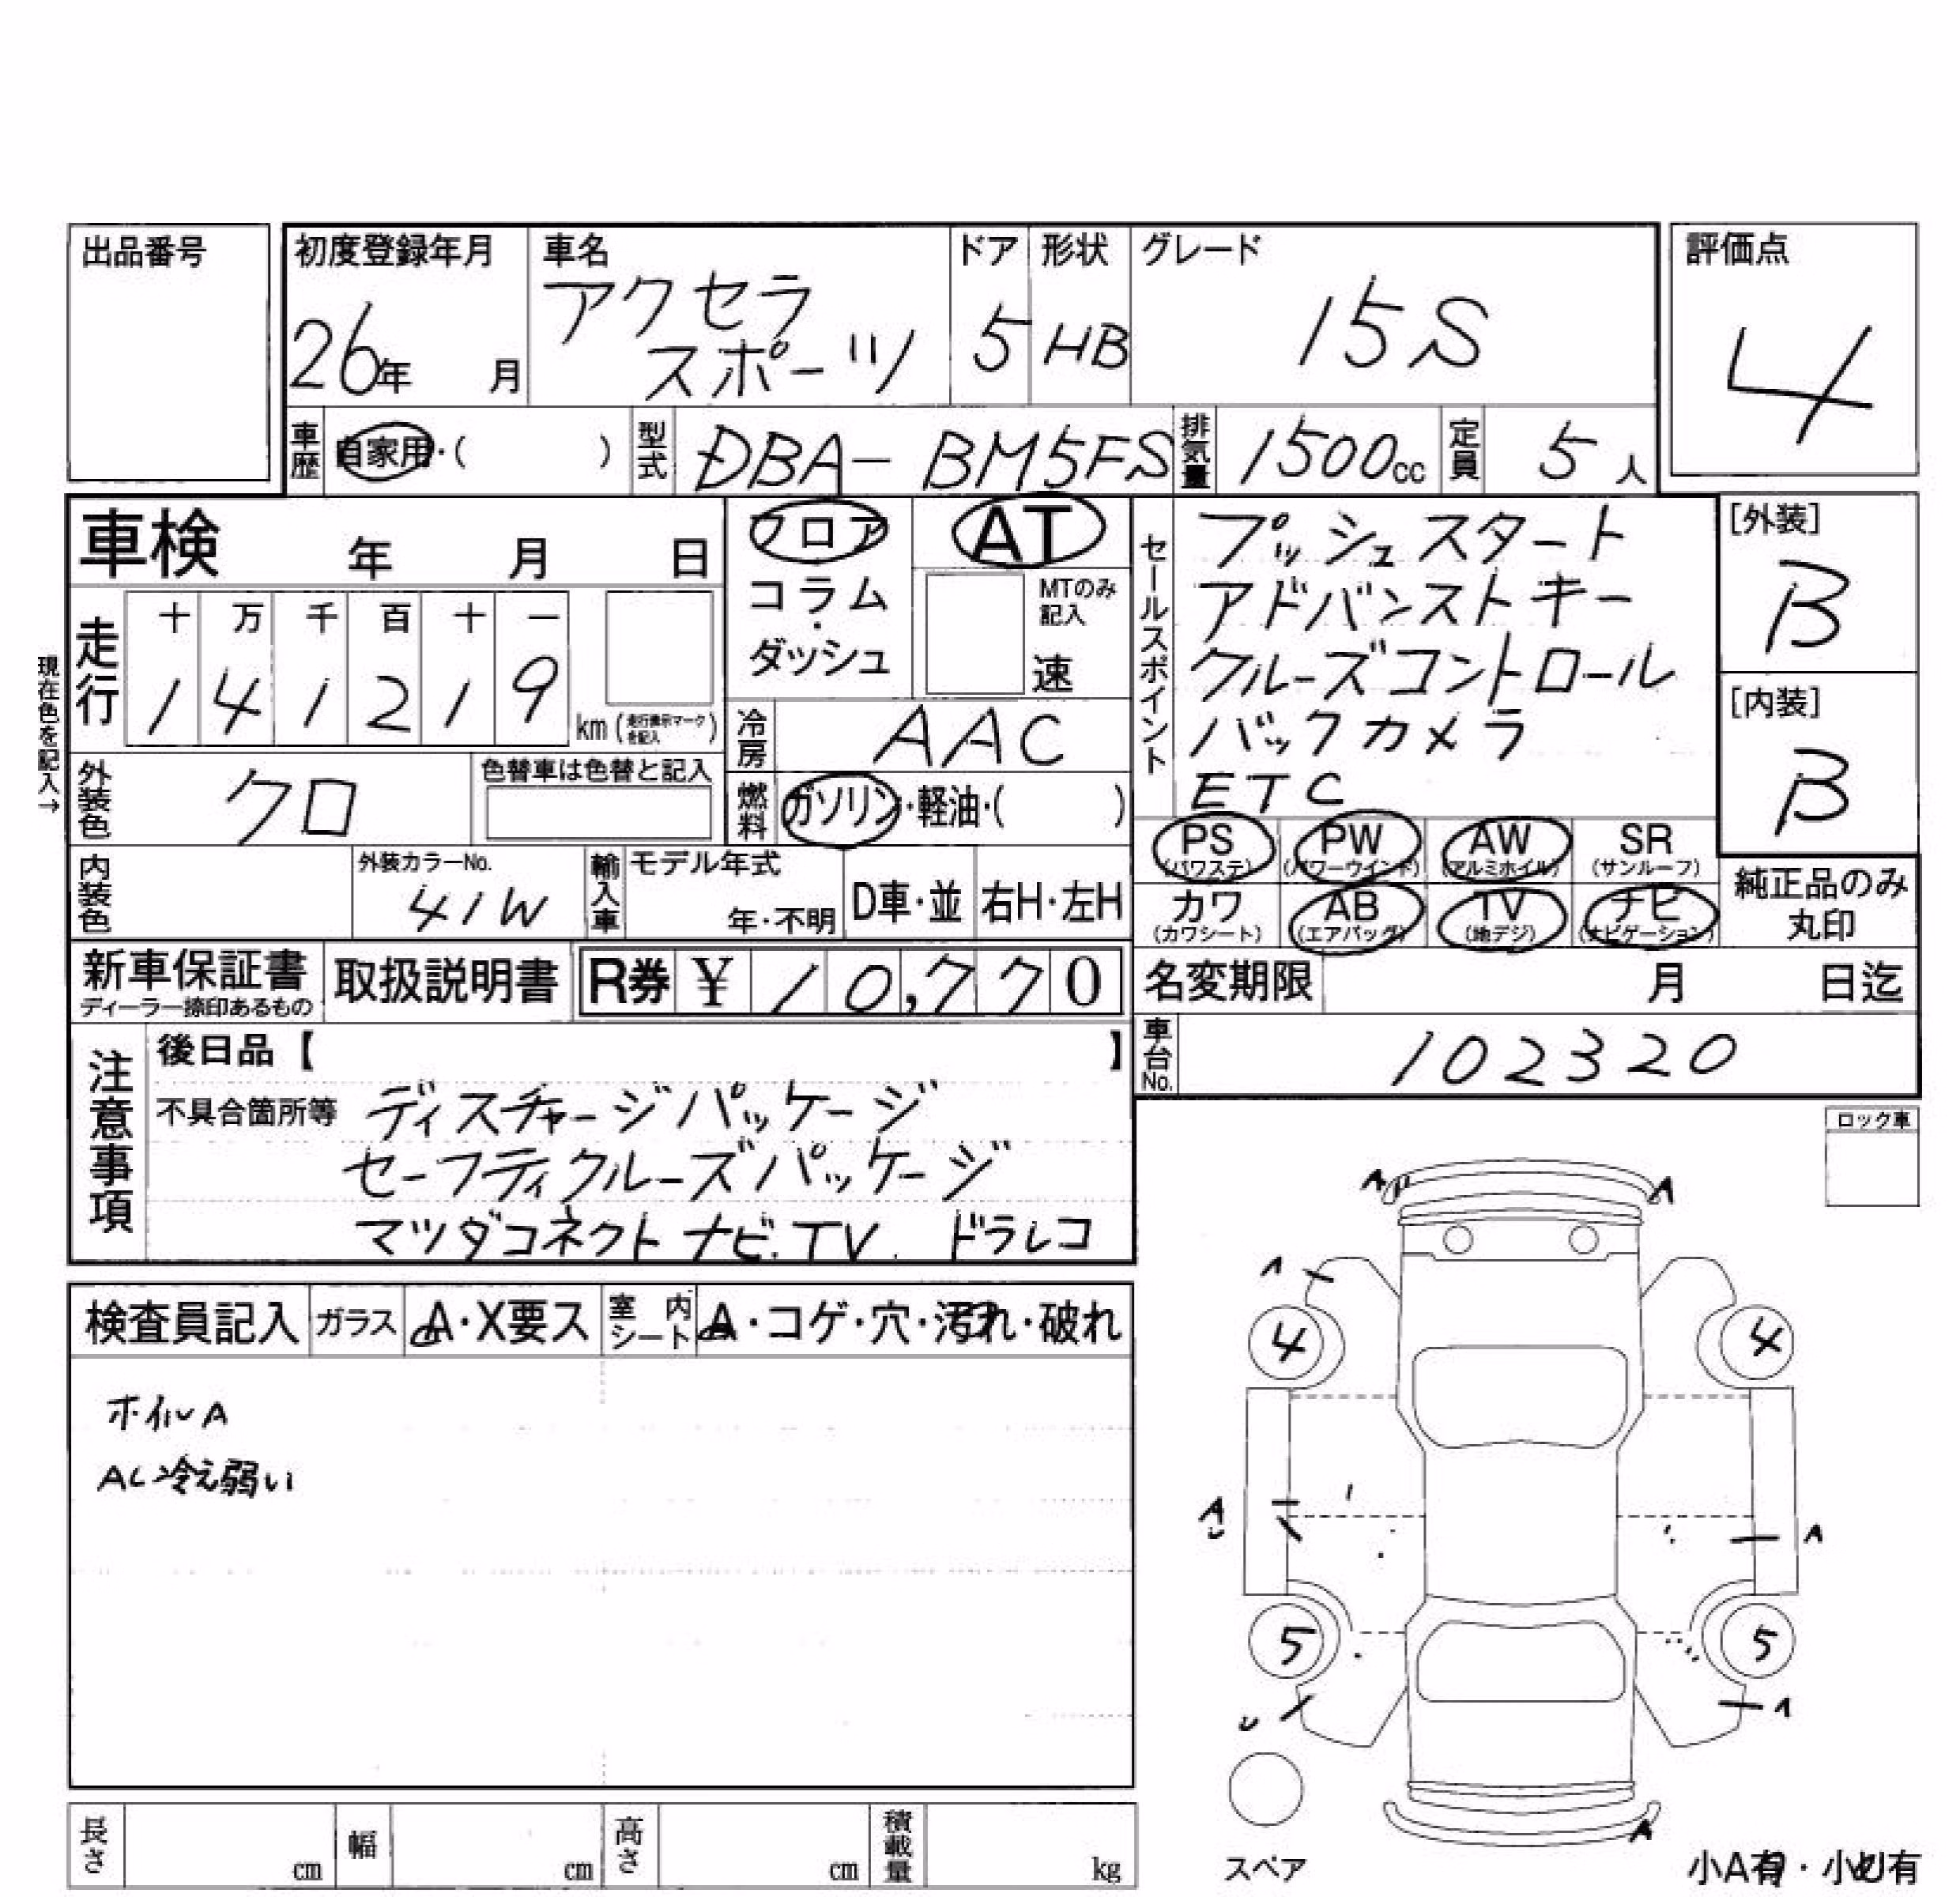 出品番号
初度登録年月
26年 月
車名
アクセラ
スポーツ
ドア
5
形状
HB
グレード
15S
評価点
4
車歴
自家用・( )
型式
DBA- BM5FS
排気量
1500cc
定員
5人
車検 年 月 日
フロア
コラム
・
ダッシュ
AT
MTのみ
記入
速
セールスポイント
プッシュスタート
アドバンストキー
クルーズコントロール
バックカメラ
ETC
[外装]
B
[内装]
B
現在色を記入→
走行
十 万 千 百 十 一
1 4 1 2 1 9
km(走行表示マークを記入)
冷房
AAC
外装色
クロ
色替車は色替と記入
燃料
ガソリン・軽油・( )
PS
(パワステ)
PW
(パワーウインド)
AW
(アルミホイル)
SR
(サンルーフ)
カワ
(カワシート)
AB
(エアバッグ)
TV
(地デジ)
ナビ
(ナビゲーション)
純正品のみ
丸印
内装色
外装カラーNo.
41W
輸入車
モデル年式
年・不明
D車・並
右H・左H
新車保証書
ディーラー捺印あるもの
取扱説明書
R券 ¥ 10,770
名変期限 月 日迄
車台No.
102320
注意事項
後日品【 】
不具合箇所等 ディスチャージパッケージ
セーフティクルーズパッケージ
マツダコネクト ナビ.TV. ドラレコ
ロック車
検査員記入
ガラス
A・X要ス
室内シート
A・コゲ・穴・汚れ・破れ
ホイルA
AC冷え弱い
A A
A
4 4
A
U
A
5 5
U A
A
スペア
小A有・小U有
長さ cm
幅 cm
高さ cm
積載量 kg